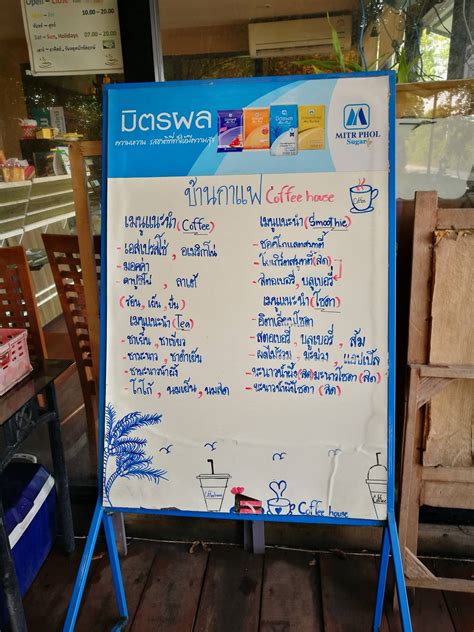 Open – Close
10.00 - 20.00
Sat – Sun, Holidays 07.00 - 20.00
มิตรผล
ความหวาน
MITR PHOL
Sugar
บ้านกาแฟ Coffee house
เมนูแนะนำ (Coffee)
- เอสเปรสโซ่, อเมริกาโน่
- มอคค่า
- คาปูชิโน่, ลาเต้
(ร้อน, เย็น, ปั่น)
เมนูแนะนำ (Tea)
- ชาเย็น, ชาเขียว
- ชามะนาว, ชาดำเย็น
- ชามะนาวน้ำผึ้ง
- โกโก้, นมเย็น, นมสด
เมนูแนะนำ (Smoothie)
- ช็อคโกแลตสมูตตี้
- โยเกิร์ตสมูตตี้ (สด)
- สตอเบอรี่, บลูเบอรี่
เมนูแนะนำ (โซดา)
- อิตาเลี่ยนโซดา
- สตอเบอรี่, บลูเบอรี่, ส้ม
- ผลไม้รวม, มะม่วง, แอปเปิ้ล
- มะนาวน้ำผึ้ง (สด) มะนาวโซดา (สด)
- มะนาวน้ำผึ้งโซดา (สด)
Coffee house